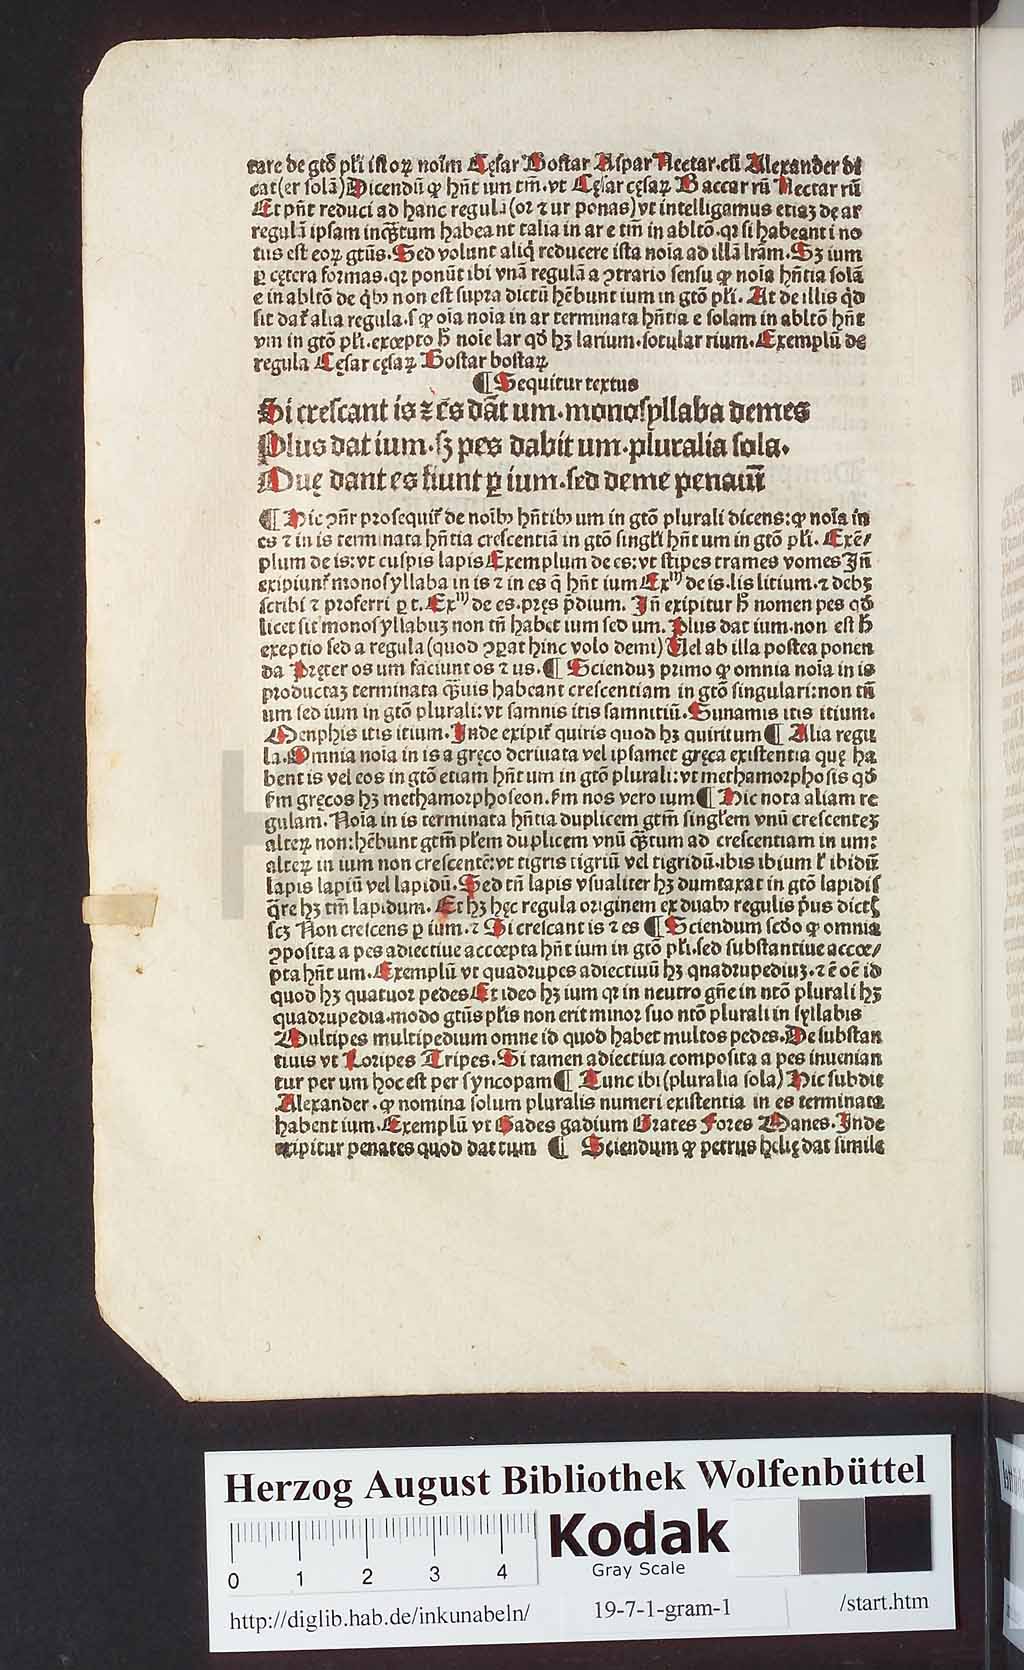 tare de gtō pl̄i iſtoꝝ noīm Cęſar Boſtar Aſpar Nectar.cū Alexander di
cat(er ſolā)Dicendū ꝙ hn̄t um tm̄.vt Cęſar cęſaꝝ Baccar rū Nectar rū
Et pn̄t reduci ad hanc regulā(or ⁊ ur ponas)vt intelligamus etiaꝫ de ar
regulā ipſam inqꝫtum habeant talia in ar e tm̄ in abltō.qꝛ ſi habeant i no
tus eſt eoꝝ gtūs.Sed volunt aliq̄ reducere iſta noīa ad illā lr̄am.Sꝫ ium
ꝑ cętera formas.qꝛ ponūt ibi vnā regulā a ꝯtrario ſenſu ꝙ noīa hn̄tia ſolā
e in abltō de q̄bꝫ non eſt ſupra dictū hēbunt ium in gtō pl̄i. At de illis q̄d
ſit dat̄ alia regula.ſ ꝙ oīa noīa in ar terminata hn̄tia e ſolam in abltō hn̄t
vm in gtō pl̄i.excepto h̄ noīe lar qd̄ hꝫ larium.ſotular rium.Exemplū de
regula Cęſar cęſaꝝ Boſtar boſtaꝝ
¶Sequitur textus
Si creſcant is ⁊ ēs dāt um.monoſyllaba demes
Plus dat ium.ſꝫ pes dabit um.pluralia ſola.
Quę dant es fiunt ꝑ ium.ſed deme penatū
¶Hic ꝯn̄r proſequit̄ de noībꝫ hn̄tibꝫ um in gtō plurali dicens:ꝙ noīa in
es ⁊ in is terminata hn̄tia creſcentiā in gtō ſingl̄i hn̄t um in gtō pl̄i. Exē⸗
plum de is:vt cuſpis lapis Exemplum de es:vt ſtipes trames vomes Jn̄
exipiunt̄ monoſyllaba in is ⁊ in es q̄ hn̄t ium Exᵐ de is.lis litium.⁊ debꝫ
ſcribi ⁊ proferri ꝑ t. Exᵐ de es.pręs p̄dium. Jn̄ exipitur h̄ nomen pes qd̄
licet ſit monoſyllabuꝫ non tn̄ habet ium ſed um. Plus dat ium.non eſt h̄
exeptio ſed a regula(quod ꝯꝑat hinc volo demi)Uel ab illa poſtea ponen
da Pręter os um faciunt os ⁊ us.¶ Sciendus primo ꝙ omnia noīa in is
productaꝫ terminata qꝫuis habeant creſcentiam in gtō ſingulari:non tn̄
um ſed ium in gtō plurali:vt ſamnis itis ſamnitiū.Sunamis itis itium.
Menphis itis itium.Inde exipit̄ quiris quod hꝫ quiritum¶ Alia regu
la.Omnia noīa in is a gręco deriuata vel ipſamet gręca exiſtentia quę ha
bent is vel eos in gtō etiam hn̄t um in gtō plurali:vt methamorphoſis qd̄
ẜm gręcos hꝫ methamorphoſeon.ẜm nos vero ium¶ Hic nota aliam re
gulam. Noīa in is terminata hn̄tia duplicem gtm̄ ſingl̄em vnū creſcenteꝫ
alteꝝ non:hēbunt gtm̄ pl̄em duplicem vnū qꝫtum ad creſcentiam in um:
alteꝝ in ium non creſcentē:vt tigris tigriū vel tigridū.ibis ibium ł ibidū
lapis lapiū vel lapidū.Sed tn̄ lapis vſualiter hꝫ dumtaxat in gtō lapidiſ
q̄re hꝫ tm̄ lapidum. Et hꝫ hęc regula originem ex duabꝫ regulis p̄us dictꝭ
ſcꝫ Non creſcens ꝑ ium.⁊ Si creſcant is ⁊ es ¶ Sciendum ſcdo ꝙ omnia
ꝯpoſita a pes adiectiue accœpta hn̄t ium in gtō pl̄i.ſed ſubſtantiue accœ⸗
pta hn̄t um.Exemplū vt quadrupes adiectiuū hꝫ qnadrupediuꝫ.⁊ ē oē id
quod hꝫ quatuor pedes Et ideo hꝫ ium qꝛ in neutro gn̄e in ntō plurali hꝫ
quadrupedia.modo gtūs pl̄is non erit minor ſuo ntō plurali in ſyllabis
Multipes multipedium omne id quod habet multos pedes.De ſubſtan
tiuis vt Loripes Tripes.Si tamen adiectiua compoſita a pes inuenian
tur per um hoc eſt per ſyncopam¶ Tunc ibi(pluralia ſola)Hic ſubdit
Alexander.ꝙ nomina ſolum pluralis numeri exiſtentia in es terminata
habent ium.Exemplū vt Gades gadium Grates Fores Manes.Inde
exipitur penates quod dat tum ¶ Sciendum ꝙ petrus hęlię dat ſimile
Herzog August Bibliothek Wolfenbüttel
Kodak
Gray Scale
0 1 2 3 4
http://diglib.hab.de/inkunabeln/ 19-7-1-gram-1 /start.htm